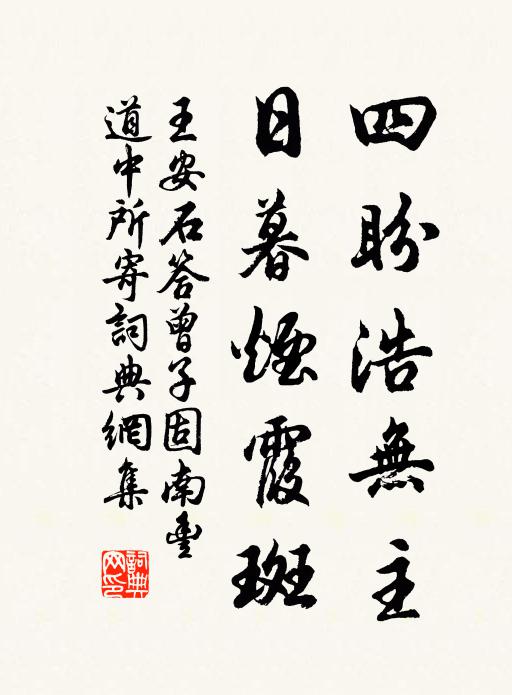 四盼浩無主
日暮煙霞斑
王安石答曾子固南豐
道中所寄詞典網集
詞典
网印